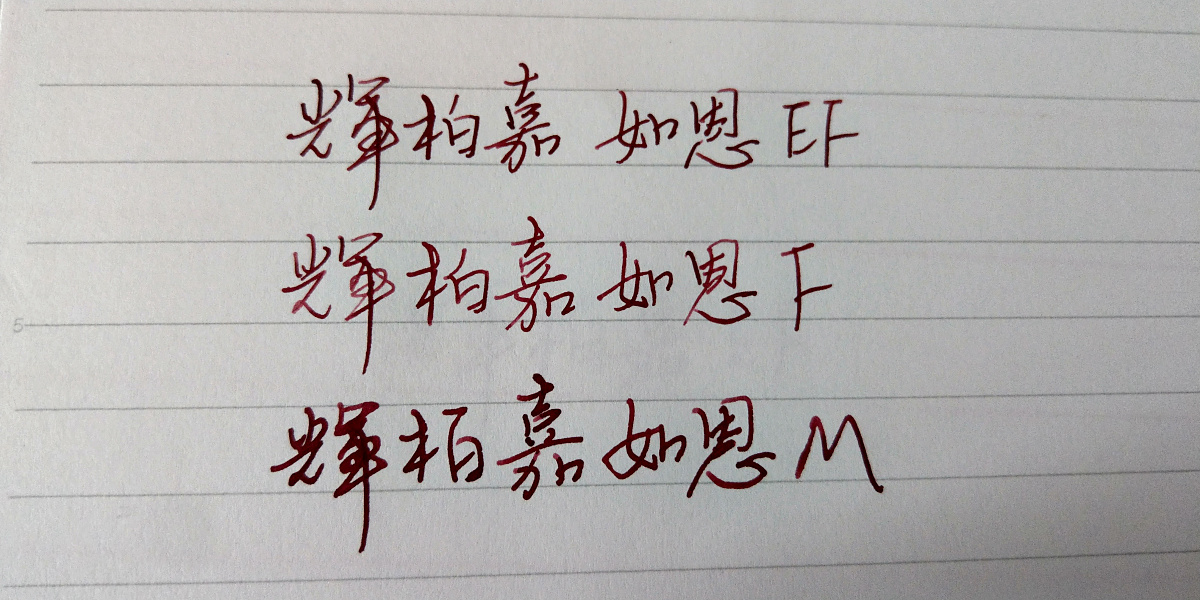 輝柏嘉 如恩 EF
輝柏嘉 如恩 F
輝柏嘉 如恩 M
5